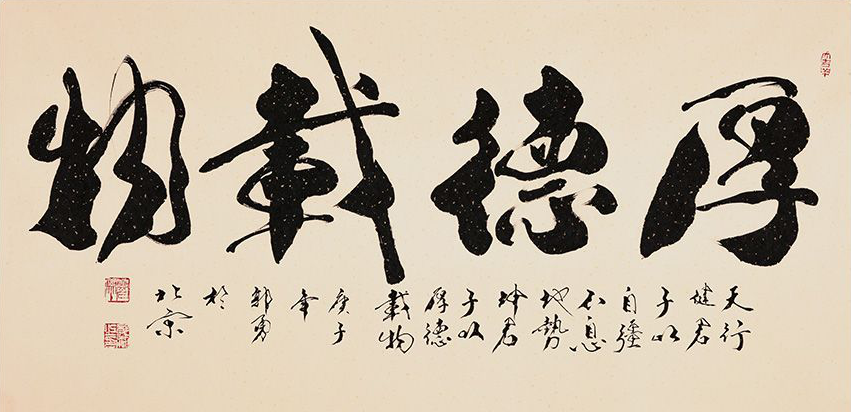 厚德載物
天行
健君
子以
自强
不息
地勢
坤君
子以
厚德
載物
庚子
年
郭勇
於
北京